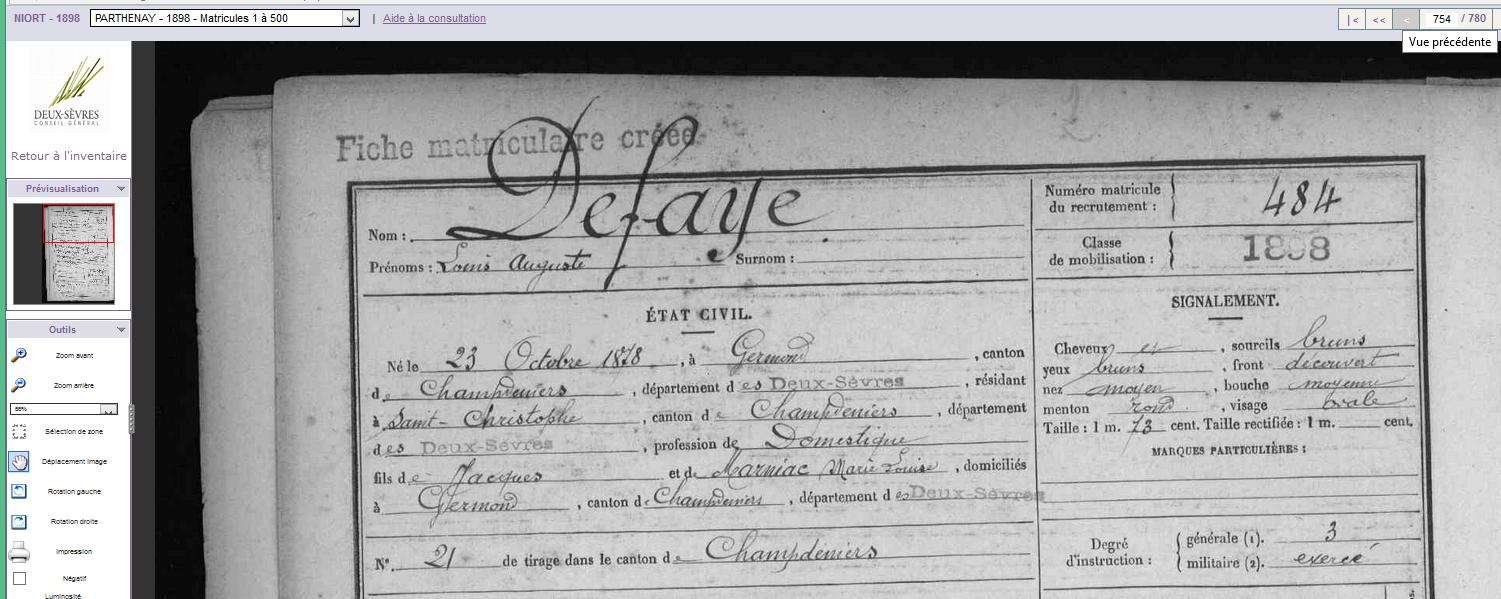 NIORT - 1898 PARTHENAY - 1898 - Matricules 1 à 500 | Aide à la consultation |< << < 754 / 780
Vue précédente
DEUX-SÈVRES
CONSEIL GÉNÉRAL
Retour à l'inventaire
Prévisualisation
Outils
Zoom avant
Zoom arrière
Sélection de zone
Déplacement image
Rotation gauche
Rotation droite
Impression
Négatif
Luminosité
Fiche matriculaire créée
Nom : Defaye
Prénoms : Louis Auguste Surnom :
Numéro matricule
du recrutement : 484
Classe
de mobilisation : 1898
ÉTAT CIVIL.
Né le 23 Octobre 1878, à Germond, canton
de Champdeniers, département des Deux-Sèvres, résidant
à Saint-Christophe, canton de Champdeniers, département
des Deux-Sèvres, profession de Domestique
fils de Jacques et de Marniac Marie Louise, domiciliés
à Germond, canton de Champdeniers, département des Deux-Sèvres
N°. 21 de tirage dans le canton de Champdeniers
SIGNALEMENT.
Cheveux et, sourcils bruns
yeux bruns, front découvert
nez moyen, bouche moyenne
menton rond, visage ovale
Taille : 1 m. 73 cent. Taille rectifiée : 1 m. cent.
MARQUES PARTICULIÈRES :
Degré
d'instruction :
générale (1). 3
militaire (2). exercé